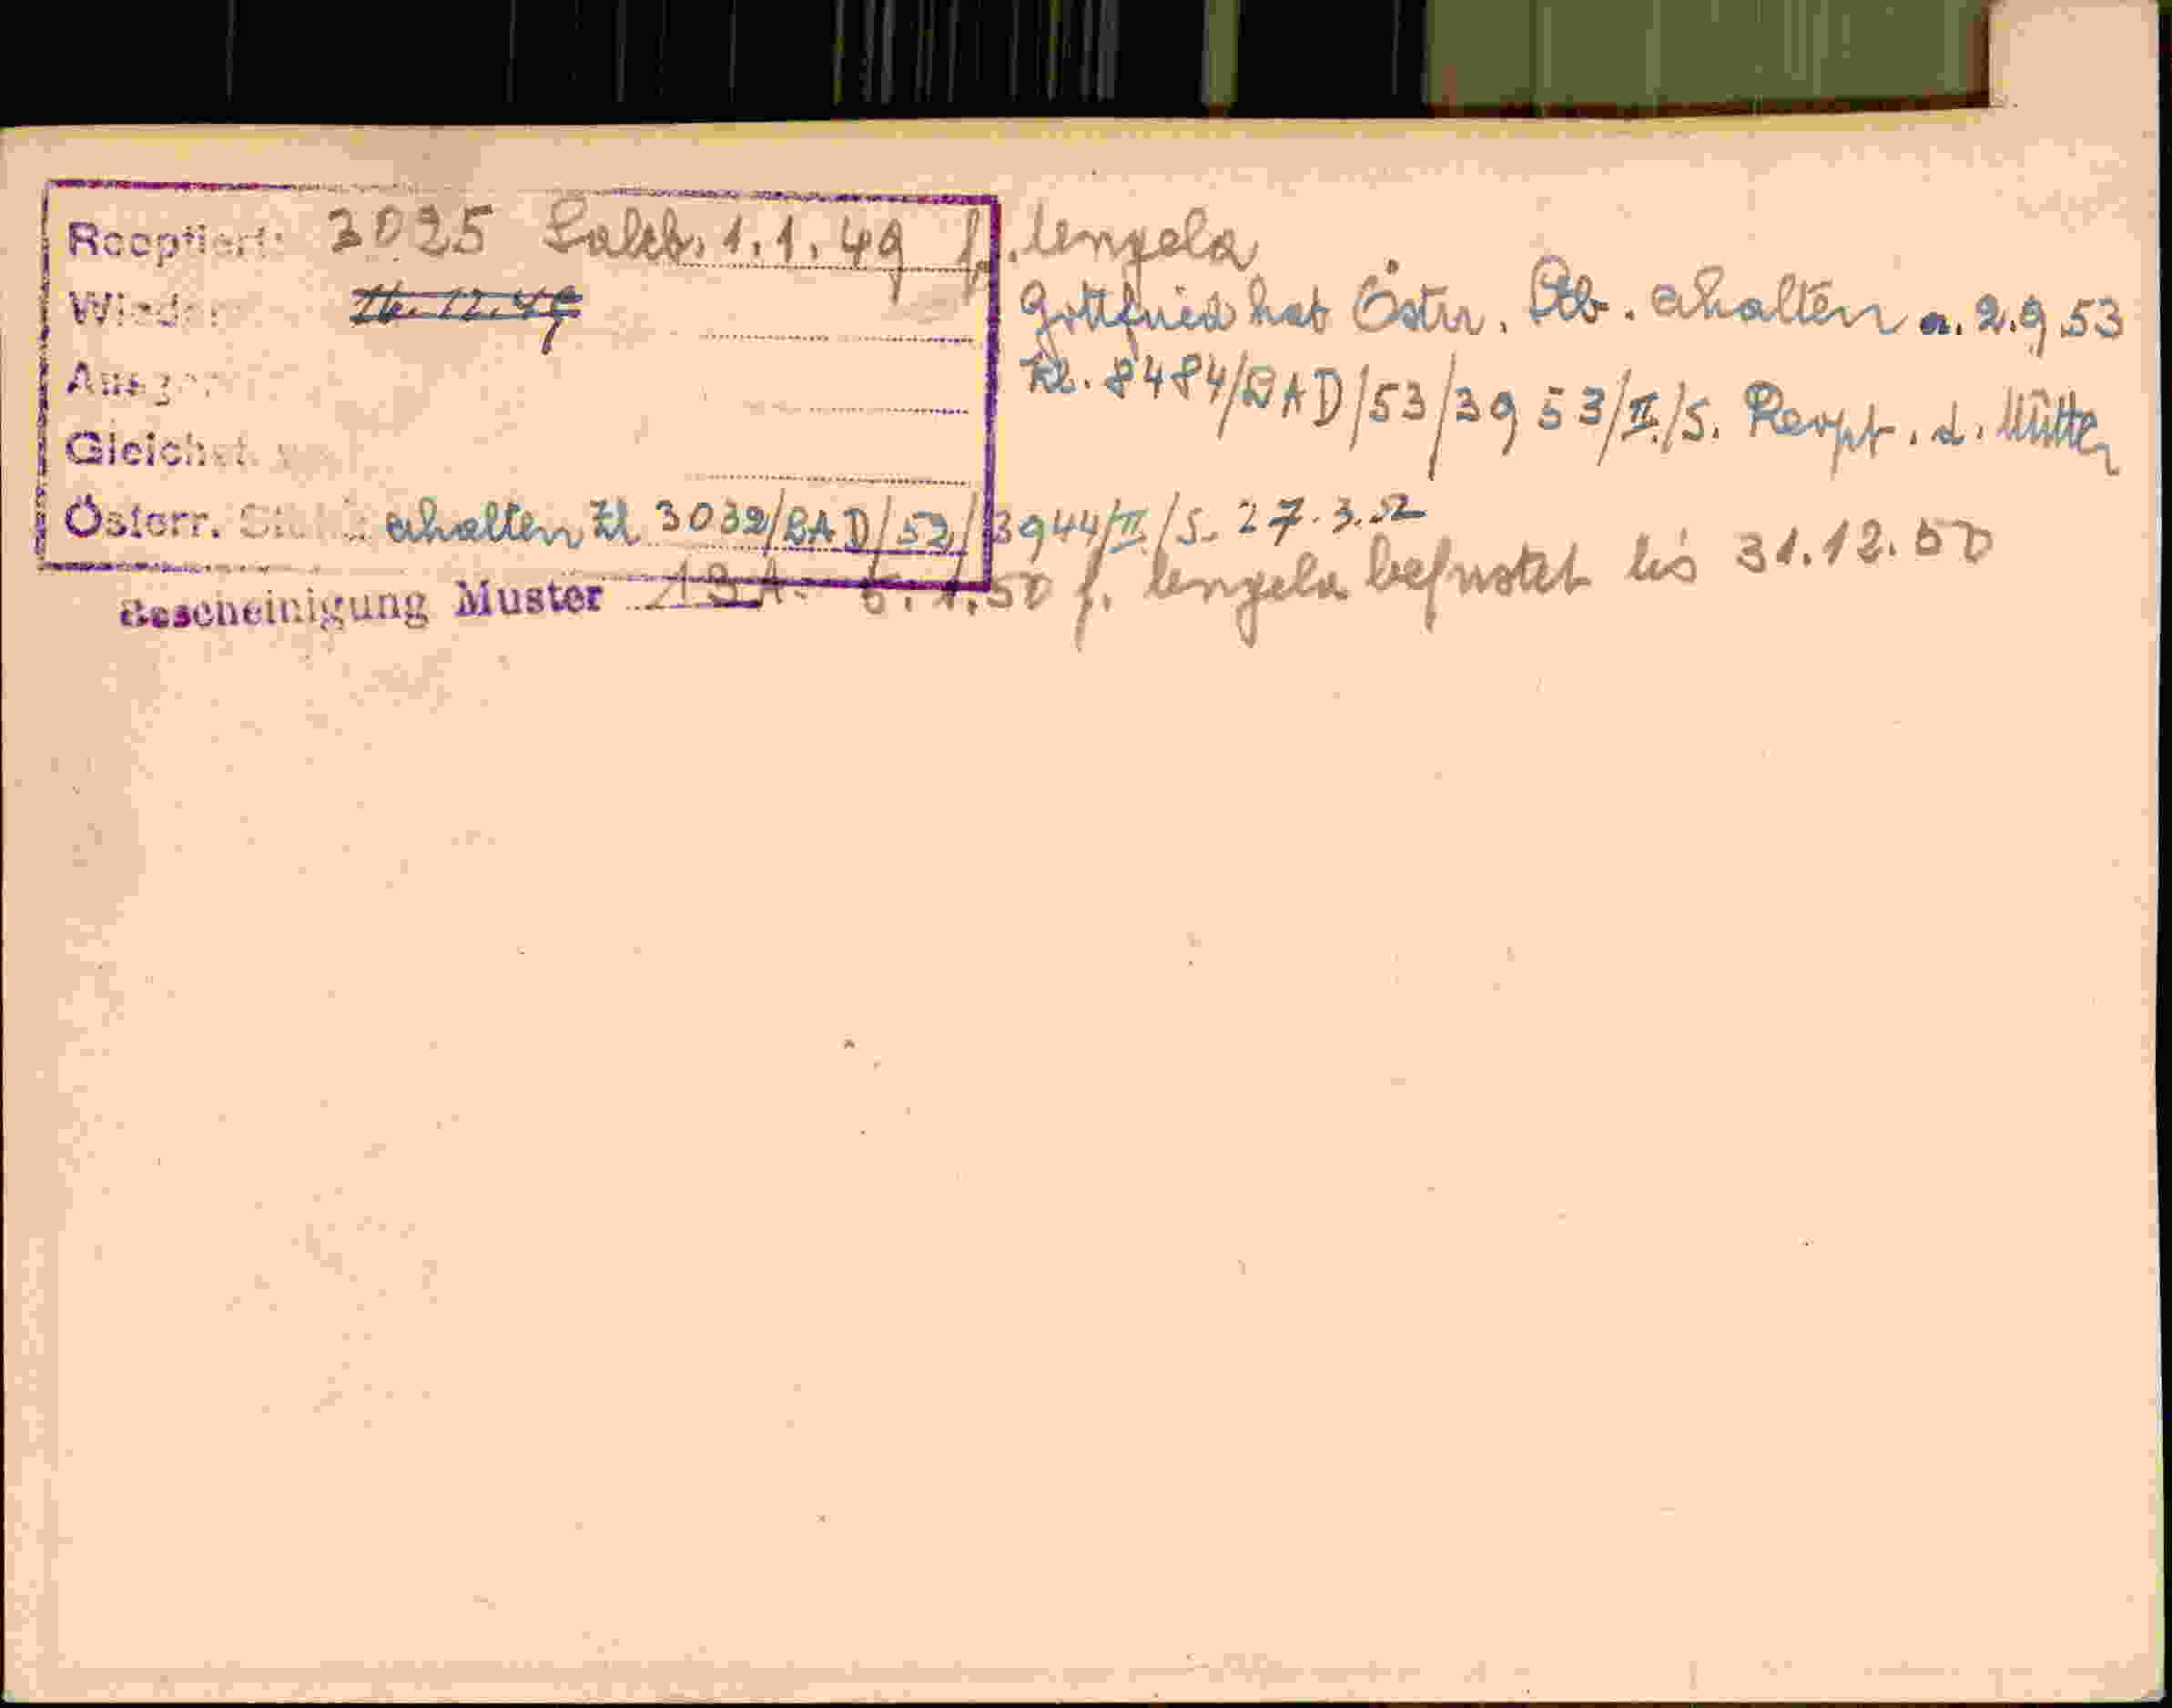 Reoptiert: 2025 Salzb. 1.1.49 f. Angela
Wieder 16.12.49
Gottfried hat Östrr. Stb. erhalten a. 2.9.53
Ausge
Zl. 8484/BAD/53/3953/II/S. Reopt. d. Mutter
Gleichst.
Österr. erhalten Zl 3032/BAD/52/3944/II/S. 27.3.52
Bescheinigung Muster 13A. 5.1.50 f. Angela befristet bis 31.12.50